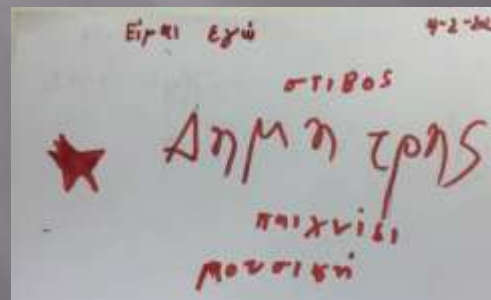 Είμαι εγώ
στιβος
Δημητρης
παιχνίδι
μουσική